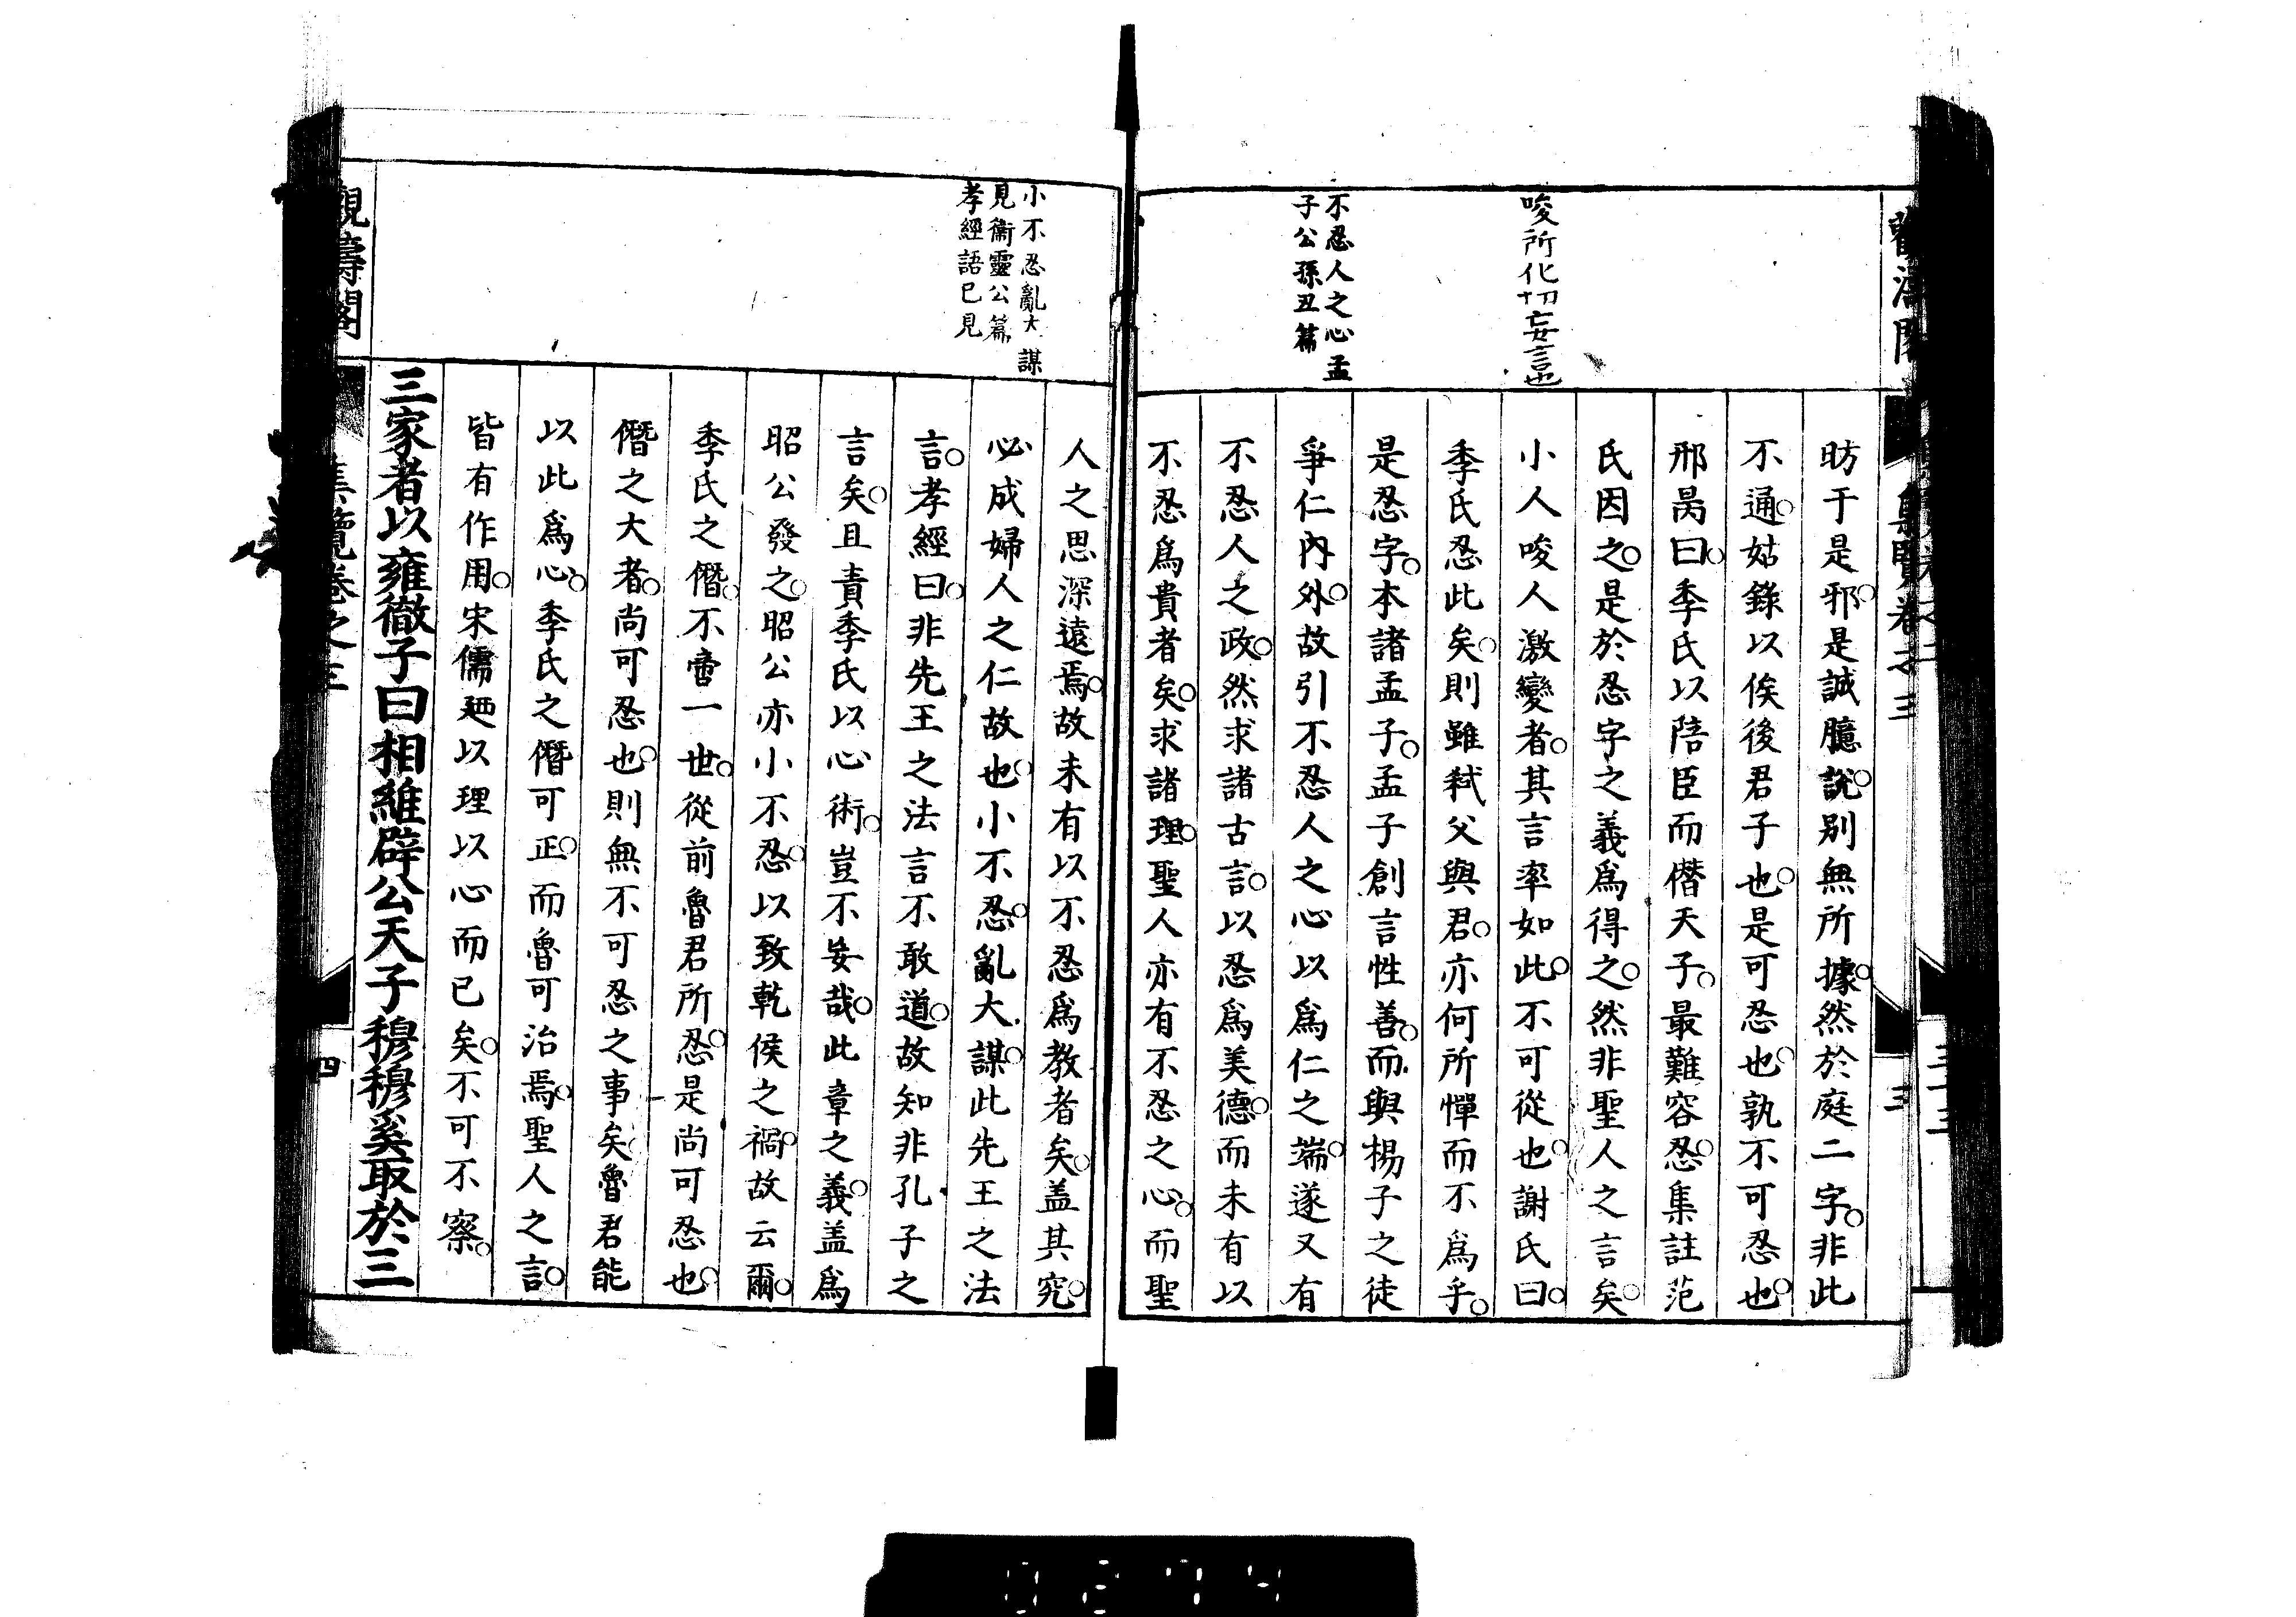 唆所化切妄言也
不忍人之心孟
子公孫丑篇
昉于是邪是誠臆說別無所據然於庭二字非此
不通姑錄以俟後君子也是可忍也孰不可忍也
邢昺曰季氏以陪臣而僭天子最難容忍集註范
氏因之是於忍字之義爲得之然非聖人之言矣
小人唆人激變者其言率如此不可從也謝氏曰
季氏忍此矣則雖弑父與君亦何所憚而不爲乎
是忍字本諸孟子孟子創言性善而與楊子之徒
爭仁內外故引不忍人之心以爲仁之端遂又有
不忍人之政然求諸古言以忍爲美德而未有以
不忍爲貴者矣求諸理聖人亦有不忍之心而聖
小不忍亂大謀
見衞靈公篇
孝經語已見
人之思深遠焉故未有以不忍爲教者矣盖其究
必成婦人之仁故也小不忍亂大謀此先王之法
言孝經曰非先王之法言不敢道故知非孔子之
言矣且責季氏以心術豈不妄哉此章之義盖爲
昭公發之昭公亦小不忍以致乾侯之禍故云爾
季氏之僭不啻一世從前魯君所忍是尚可忍也
僭之大者尚可忍也則無不可忍之事矣魯君能
以此爲心季氏之僭可正而魯可治焉聖人之言
皆有作用宋儒廼以理以心而已矣不可不察
三家者以雍徹子曰相維辟公天子穆穆奚取於三
集覽卷之三
四
觀濤閣